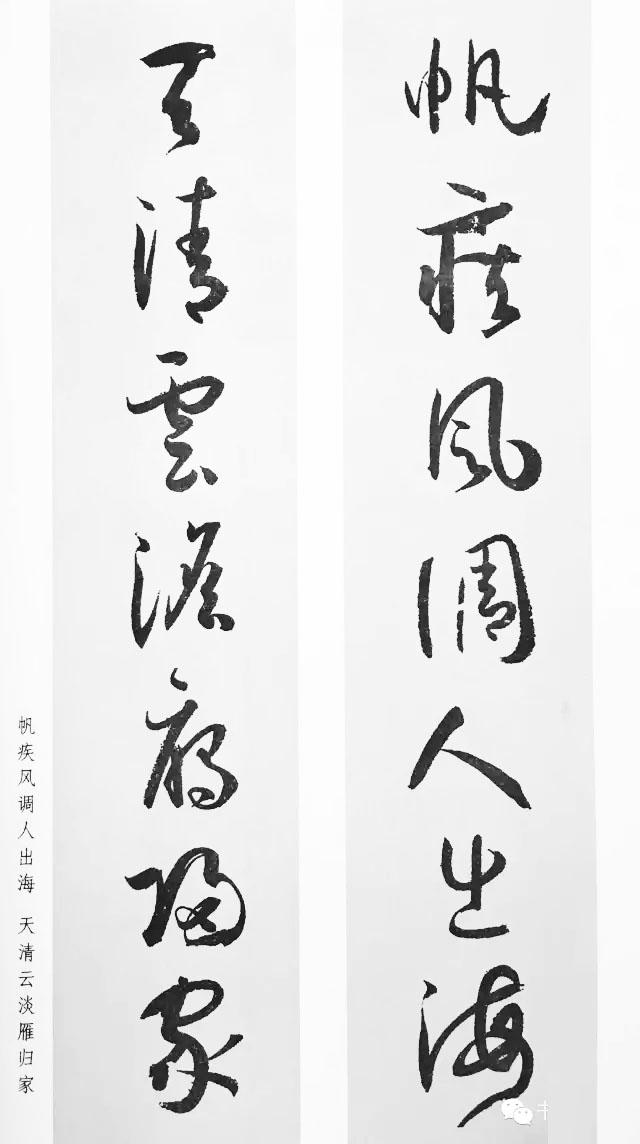 帆疾風調人出海
天清雲澹雁歸家
帆疾风调人出海 天清云淡雁归家